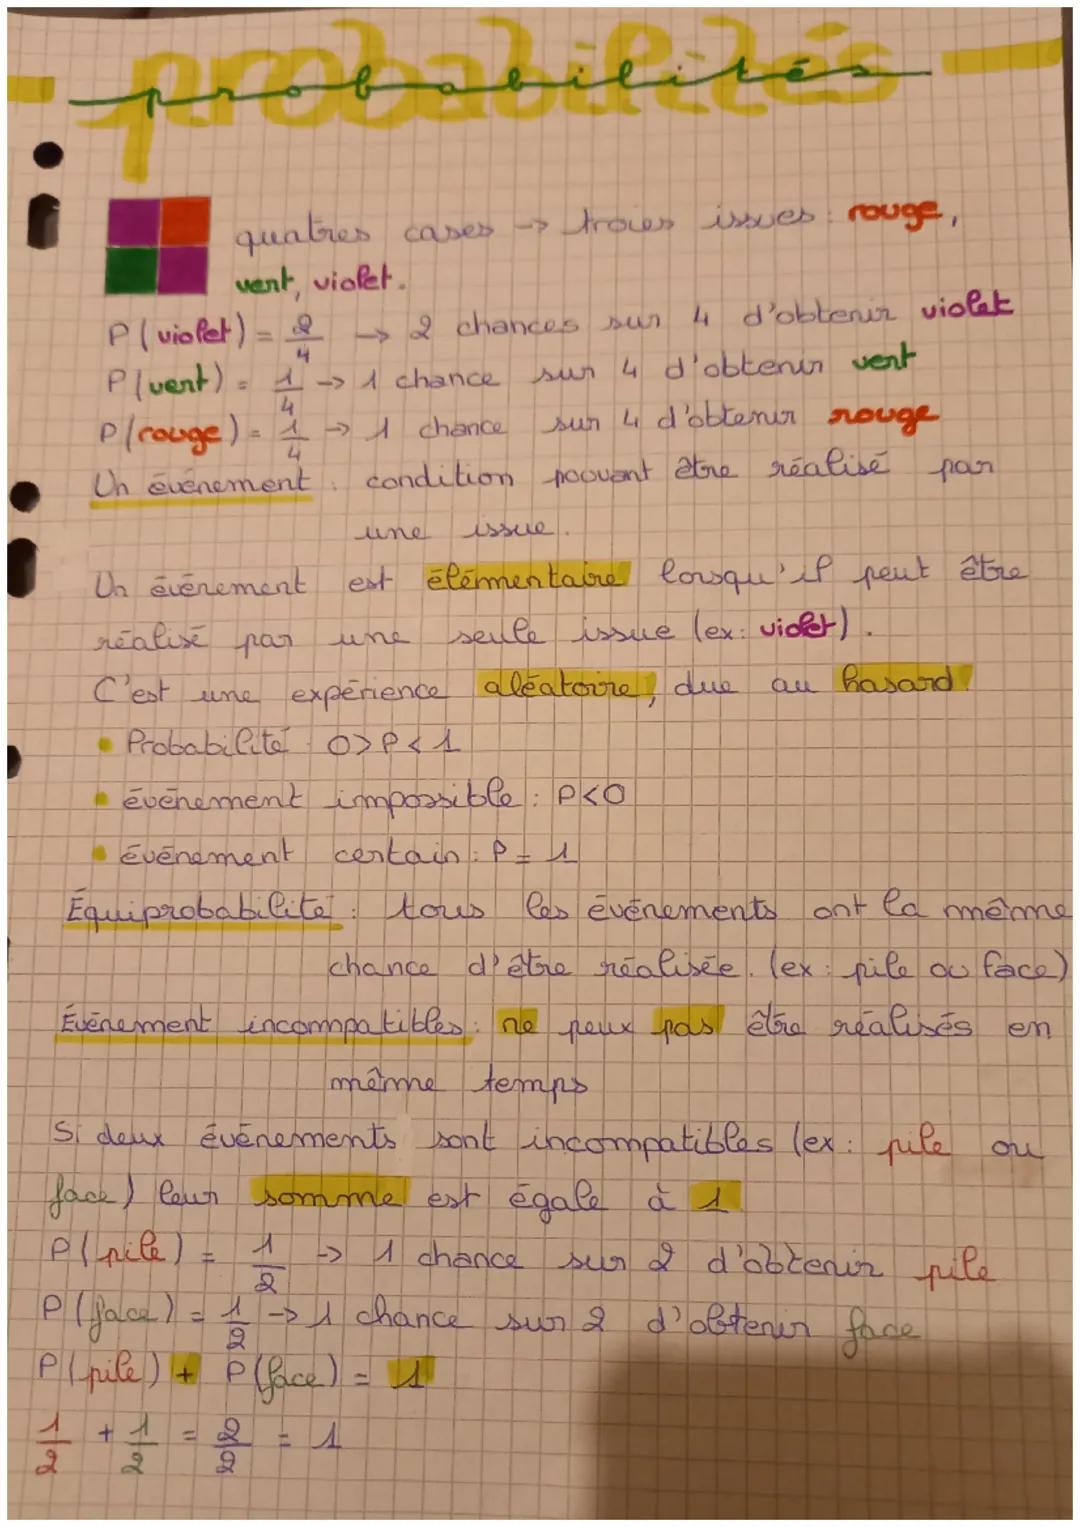 probabilités
quatres cases -> troies issues : rouge,
vert, violet.
P(violet) = 2/4 -> 2 chances sur 4 d'obtenir violet
P(vert) = 1/4 -> 1 chance sur 4 d'obtenir vert
P(rouge) = 1/4 -> 1 chance sur 4 d'obtenir rouge
Un événement : condition pouvant être réalisé par
une issue.
Un événement est élémentaire lorsqu'il peut être
réalisé par une seule issue (ex: violet).
C'est une expérience aléatoire, due au hasard.
• Probabilité 0>P<1
• événement impossible : P<0
• événement certain : P = 1
Équiprobabilité : tous les événements ont la même
chance d'être réalisée. (ex : pile ou face)
Événement incompatibles : ne peux pas être réalisés en
même temps
Si deux événements sont incompatibles (ex : pile ou
face) leur somme est égale à 1
P(pile) = 1/2 -> 1 chance sur 2 d'obtenir pile
P(face) = 1/2 -> 1 chance sur 2 d'obtenir face
P(pile) + P(face) = 1
1/2 + 1/2 = 2/2 = 1